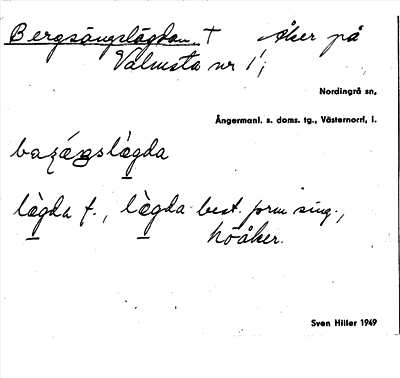 Bergsängslägdan † Åker på
Valmsta nr 1;
Nordingrå sn,
Ångermanl. s. doms. tg., Västernorrl. l.
bazáŋslàgda
làgda f., làgda best. form sing.,
höåker.
Sven Hiller 1949